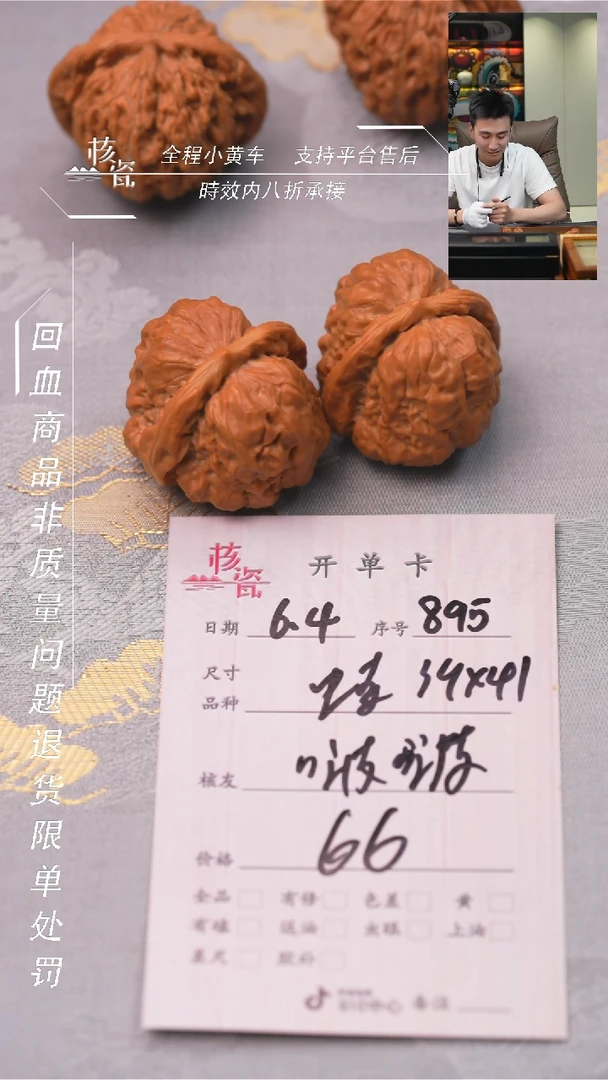 核瓷
全程小黄车 支持平台售后
時效内八折承接
回血商品非质量问题退货限单处罚
核瓷
开单卡
日期 6.4 序号 895
尺寸
品种 39x41
核友
价格 66
全品 有修 色差 黄
有磕 送油 火眼 上油
差尺 胶补
备注